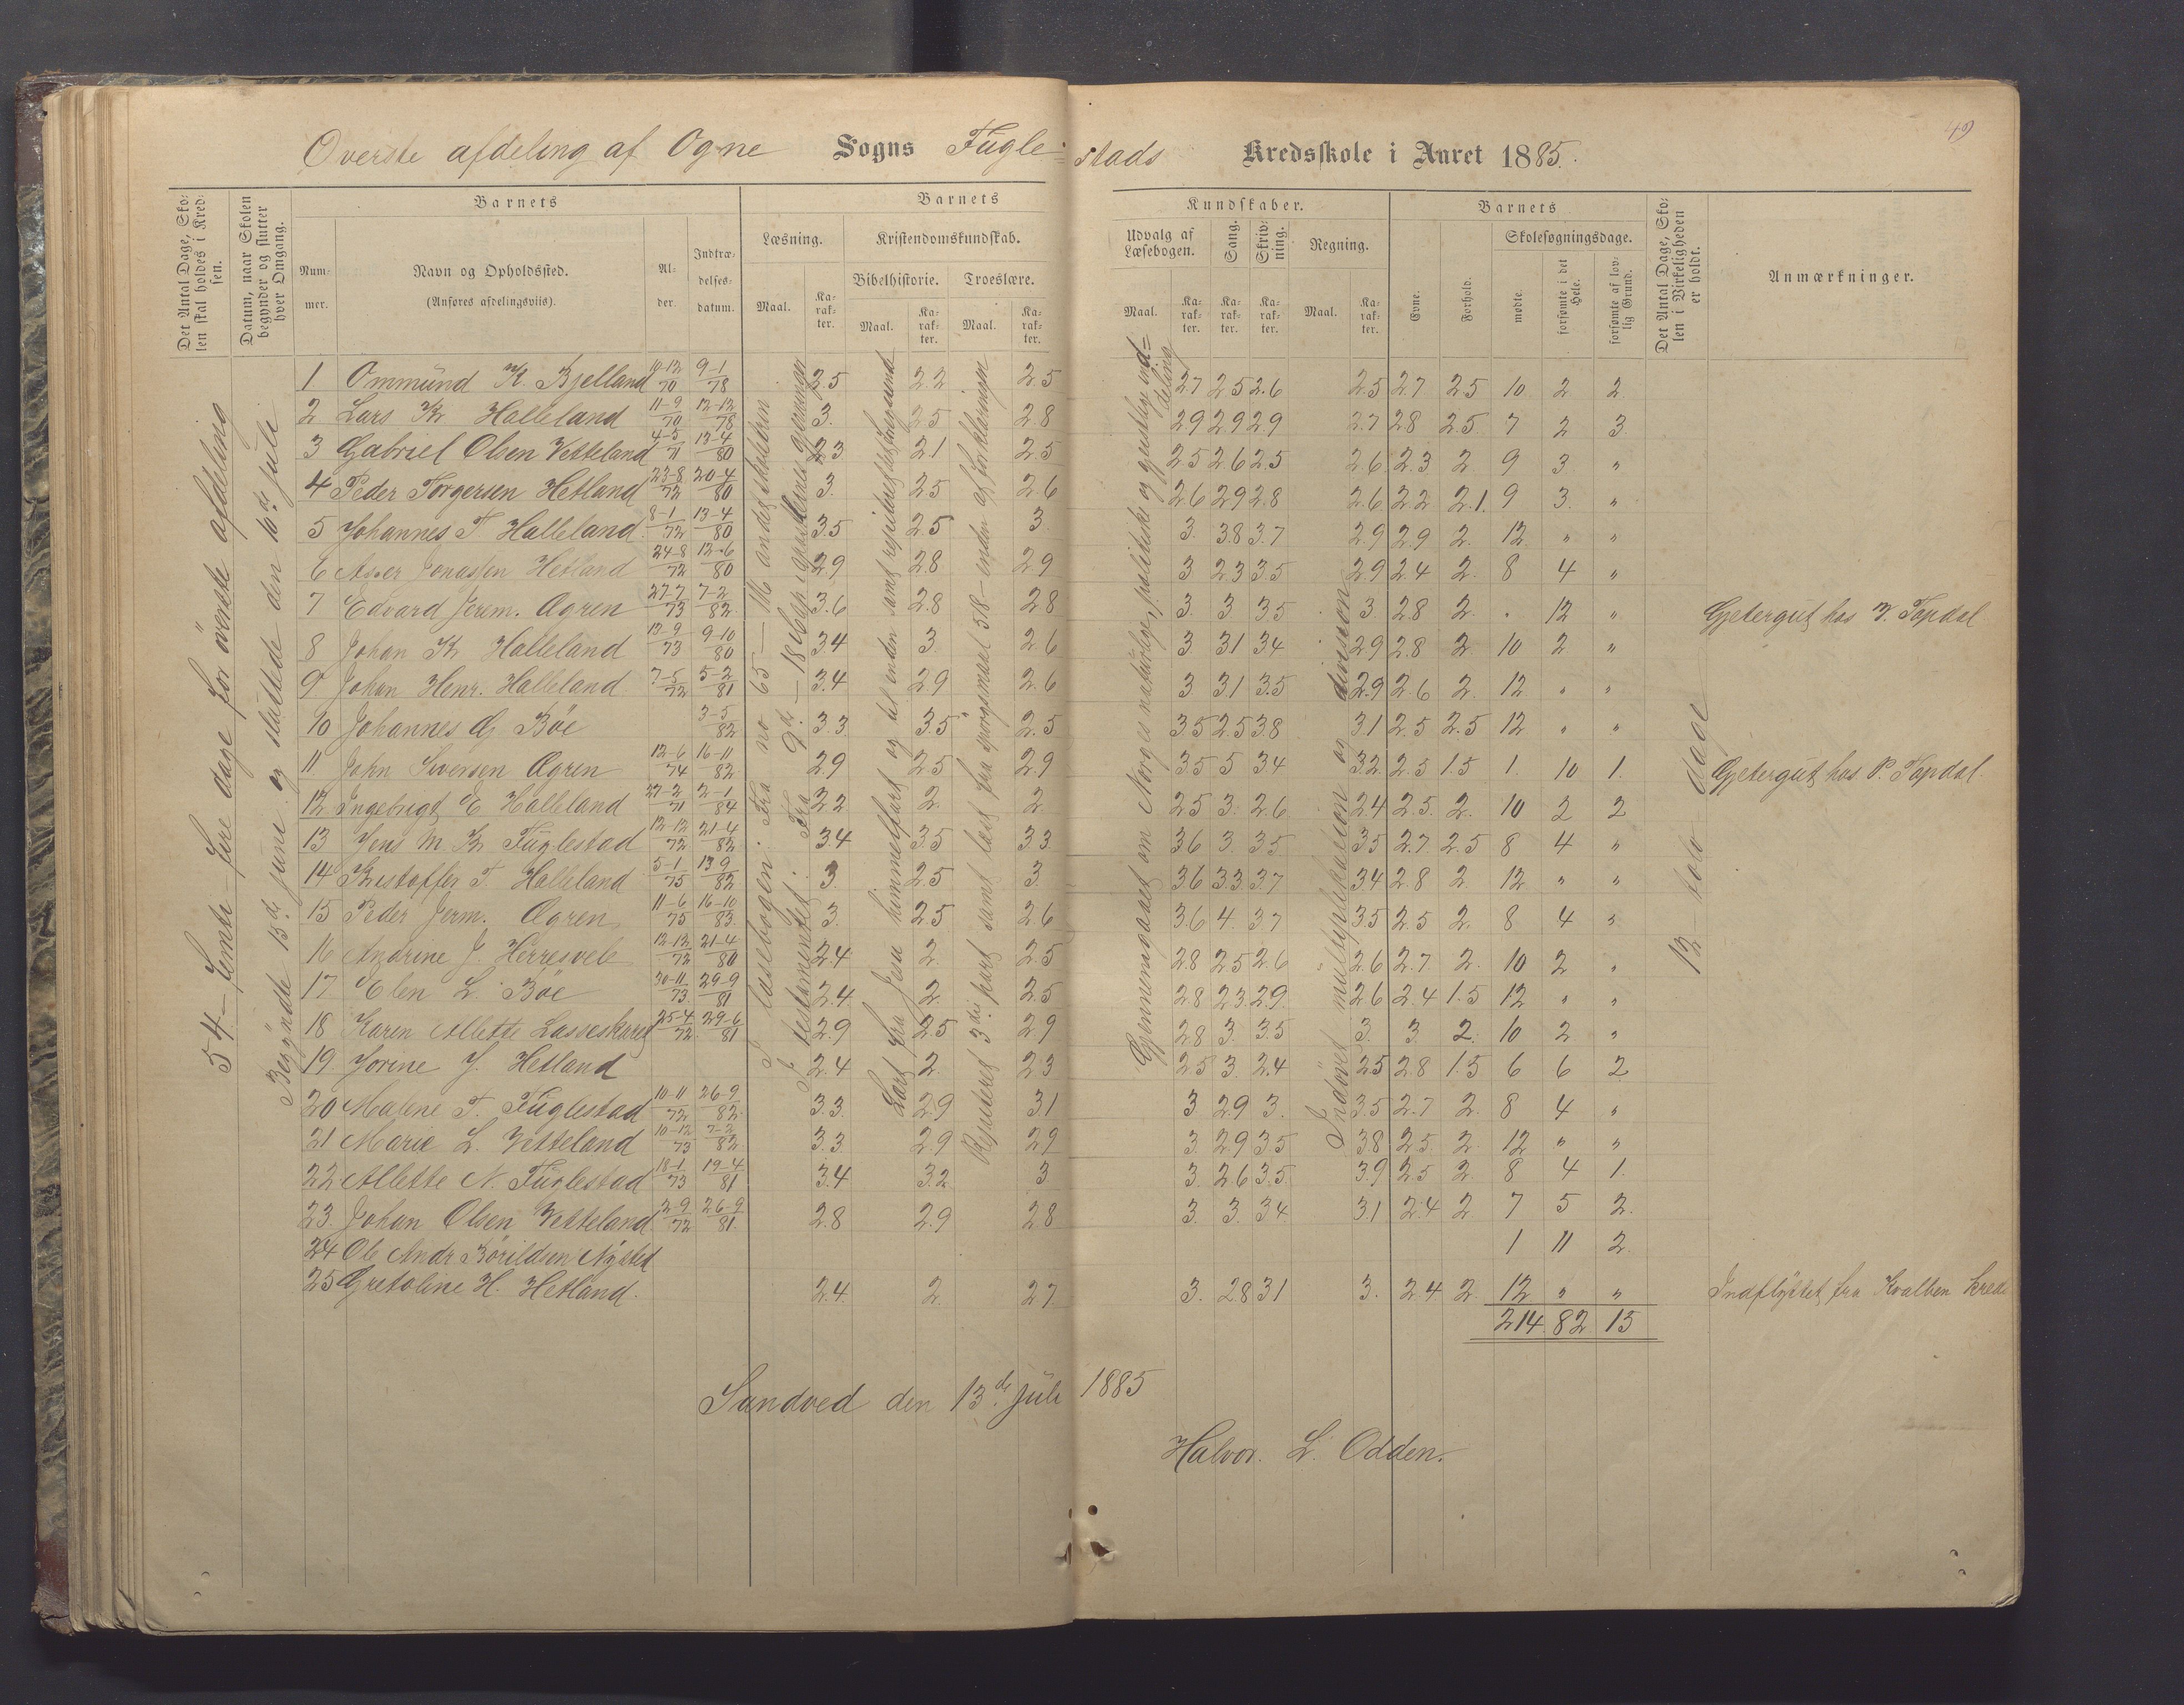 49
Överste afdeling af Ogne Sogns Fugle- stads Kredsskole i Aaret 1885.
Det Antal Dage, Skolen skal holdes i Kredsen.
Datum, naar Skolen begynder og slutter hver Omgang.
Barnets
Nummer.
Navn og Opholdssted.
(Anføres afdelingsviis).
Alder.
Indtrædelsesdatum.
Barnets Kundskaber.
Læsning.
Maal.
Karakter.
Kristendomskundskab.
Bibelhistorie.
Maal.
Karakter.
Troeslære.
Maal.
Karakter.
Udvalg af Læsebogen.
Maal.
Karakter.
Sang.
Karakter.
Skrivning.
Karakter.
Regning.
Maal.
Karakter.
Barnets
Evne.
Forhold.
Skolesøgningsdage.
mødte.
forsømte i det Hele.
forsømte af lovlig Grund.
Det Antal Dage, Skolen i Virkeligheden er holdt.
Anmærkninger.
54 - femti fire dage for överste afdeling
Begÿndte 15de juni og sluttede den 10de juli
I læsebogen: Fra no 65 -
I testamentet: Fra 9de - 18
Lært fra Jesu himmelfart og til enden samt repeteret
Repeteret 3die part samt lært fra spörgsmaal 518 - enden af forklaringen
Gjennemgaaet om Norges naturlige, politiske og geistlige inddeling
Indövet multiplikation og division
12 - tolv - dage
1 Ommund K. Bjelland 10-12/70 9-1/78 2.5 2.2 2.5 2.7 2.5 2.6 2.5 2.7 2.5 10 2 2
2 Lars K Halleland 11-9/70 12-12/78 3. 2.5 2.8 2.9 2.9 2.9 2.7 2.8 2.5 7 2 3
3 Gabriel Olsen Vetteland 4-5/71 13-4/80 2.3 2.1 2.5 2.5 2.6 2.5 2.6 2.3 2 9 3 "
4 Peder Torgersen Hetland 23-8/72 20-4/80 3. 2.5 2.6 2.6 2.9 2.8 2.6 2.2 2.1 9 3. "
5 Johannes T Halleland 8-1/72 13-4/80 3.5 2.5 3. 3. 3.8 3.7 2.9 2.9 2. 12 " "
6 Asser Jonassen Hetland 24-8/72 12-6/80 2.9 2.8 2.9 3 2.3 3.5 2.9 2.4 2. 8 4 "
7 Edvard Jerem. Ægren 27-7/73 7-2/82 3.6 2.8 2.8 3. 3 3.5 3. 2.8 2. " 12 " Gjetergut hos T. Tapdal
8 Johan K Halleland 13-9/73 9-10/80 3.4 3. 2.6 3 3.1 3.4 2.9 2.8 2. 10 2 "
9 Johan Henr. Halleland 7-5/72 5-2/81 3.4 2.9 2.6 3 3.1 3.5 2.9 2.6 2. 12 " "
10 Johannes G Böe 3-5/82 3.3 3.5 2.5 3.5 2.5 3.8 3.1 2.5 2.5 12 " "
11 John Siversen Ægren 12-6/74 16-11/82 2.9 2.5 2.9 3.5 5 3.4 3.2 2.5 1.5 1. 10 1. Gjetergut hos P. Tapdal
12 Ingebrigt E Halleland 27-2/71 2-1/84 2.2 2. 2. 2.5 3. 2.6 2.4 2.5 2. 10 2 2
13 Jens M. K Fuglestad 12-12/72 21-4/82 3.4 3.5 3.3 3.6 3. 3.5 3.5 2.7 2.5 8 4 "
14 Kristoffer T Halleland 5-1/75 13-9/82 3. 2.5 3. 3.6 3.3 3.7 3.4 2.8 2. 12 " "
15 Peder Jerm. Ægren 11-6/75 16-10/83 3. 2.5 2.6 3.6 4. 3.7 3.5 2.5 2. 8 4 "
16 Andrine J. Herresvele 12-12/72 21-4/80 2.4 2. 2.5 2.8 2.5 2.6 2.6 2.7 2. 10 2 "
17 Elen L. Böe 30-11/73 29-9/81 2.4 2. 2.5 2.8 2.3 2.9 2.6 2.4 1.5 12 " "
18 Karen Alette Lasseskaret 25-4/72 29-6/81 2.9 2.5 2.9 2.8 3. 3.5 3. 3. 2. 10 2 "
19 Jorine J. Hetland 2.4 2. 2.3 2.5 3. 2.4 2.5 2.8 1.5 6 6 2
20 Malene T. Fuglestad 10-11/72 26-9/82 3.3. 2.9 3.1 3 2.9 3. 3.5 2.7 2. 8 4 "
21 Marie L. Vetteland 10-12/73 7-2/82 3.3. 2.9 2.9 3. 2.9 3.5 3.8 2.5 2. 12 " "
22 Alette N. Fuglestad 18-1/73 19-4/81 3.4 3.2 3 3. 2.6 3.5. 3.9 2.5 2. 8 4 1.
23 Johan Olsen Vetteland 12-9/72 26-9/81 2.8 2.9 2.8 3. 3. 3.4 3.1 2.4 2 7 5 2.
24 Ole Andr Börildsen Nÿsted 1 11 2.
25 Gretoline H. Hetland. 2.4. 2. 2.7 3. 2.8 3.1 3. 2.4 2. 12 " " Indflÿttet fra Kvalben kreds
214 82 15
Sandved den 13de Juli 1885
Halvor. L. Odden.